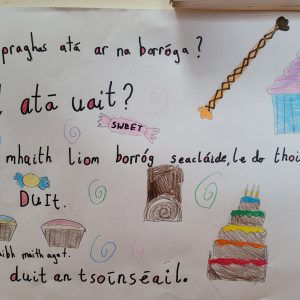 praghas atá ar na borróga?
atá uait?
SWEET
mhaith liom borróg seacláide, le do thoi
Duit.
aibh maith agat.
duit an tsóinséail.